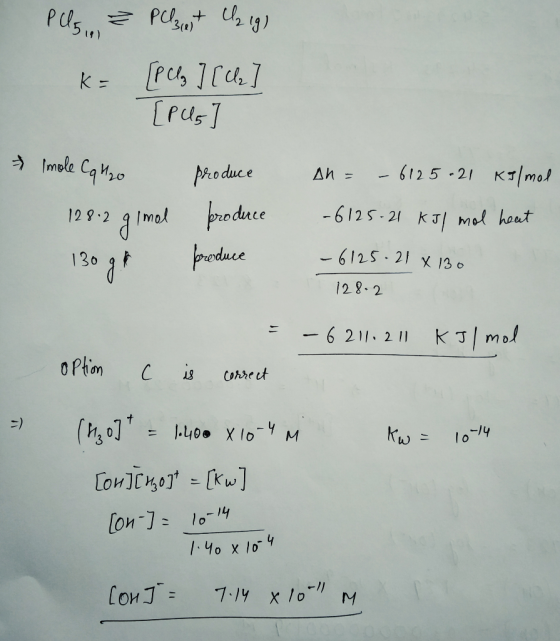 PCl₅₍ₛ₎ ⇌ PCl₃₍ₛ₎ + Cl₂ (g)
K = [PCl₃] [Cl₂] / [PCl₅]
⇒ 1mole C₉H₂₀ produce Δh = - 6125.21 KJ/mol
128.2 g/mol produce -6125.21 KJ/ mol heat
130 g produce - 6125.21 x 130 / 128.2
= - 6 211.211 KJ/mol
OPtion C is correct
⇒ [H₃O]⁺ = 1.400 x 10⁻⁴ M Kw = 10⁻¹⁴
[OH]⁻[H₃O]⁺ = [Kw]
[OH⁻] = 10⁻¹⁴ / 1.40 x 10⁻⁴
[OH]⁻ = 7.14 x 10⁻¹¹ M